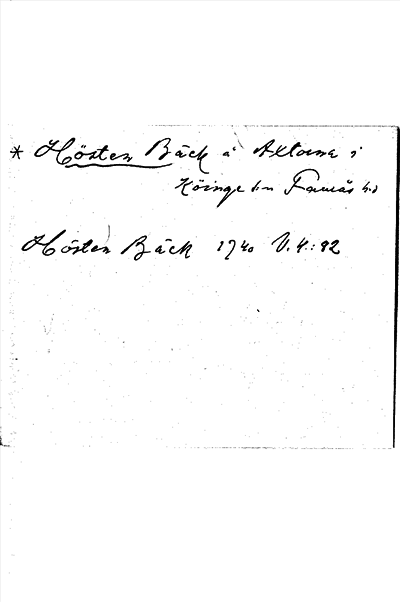 * Hösten Bäck å Axtorna i
Köinge sn Faurås hd
Hösten Bäck 1740 V. 4: 92